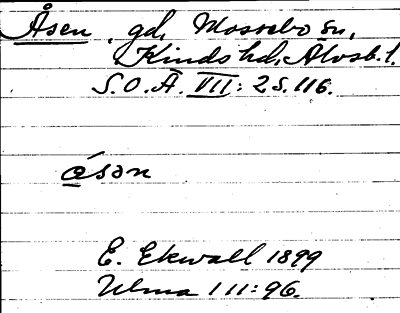 Åsen, gd, Mossebo sn,
Kinds hd, Älvsb. l.
S.O.Ä. VII: 2 s. 116.
ó̱sən
E. Ekwall 1899
Ulma 111:96.